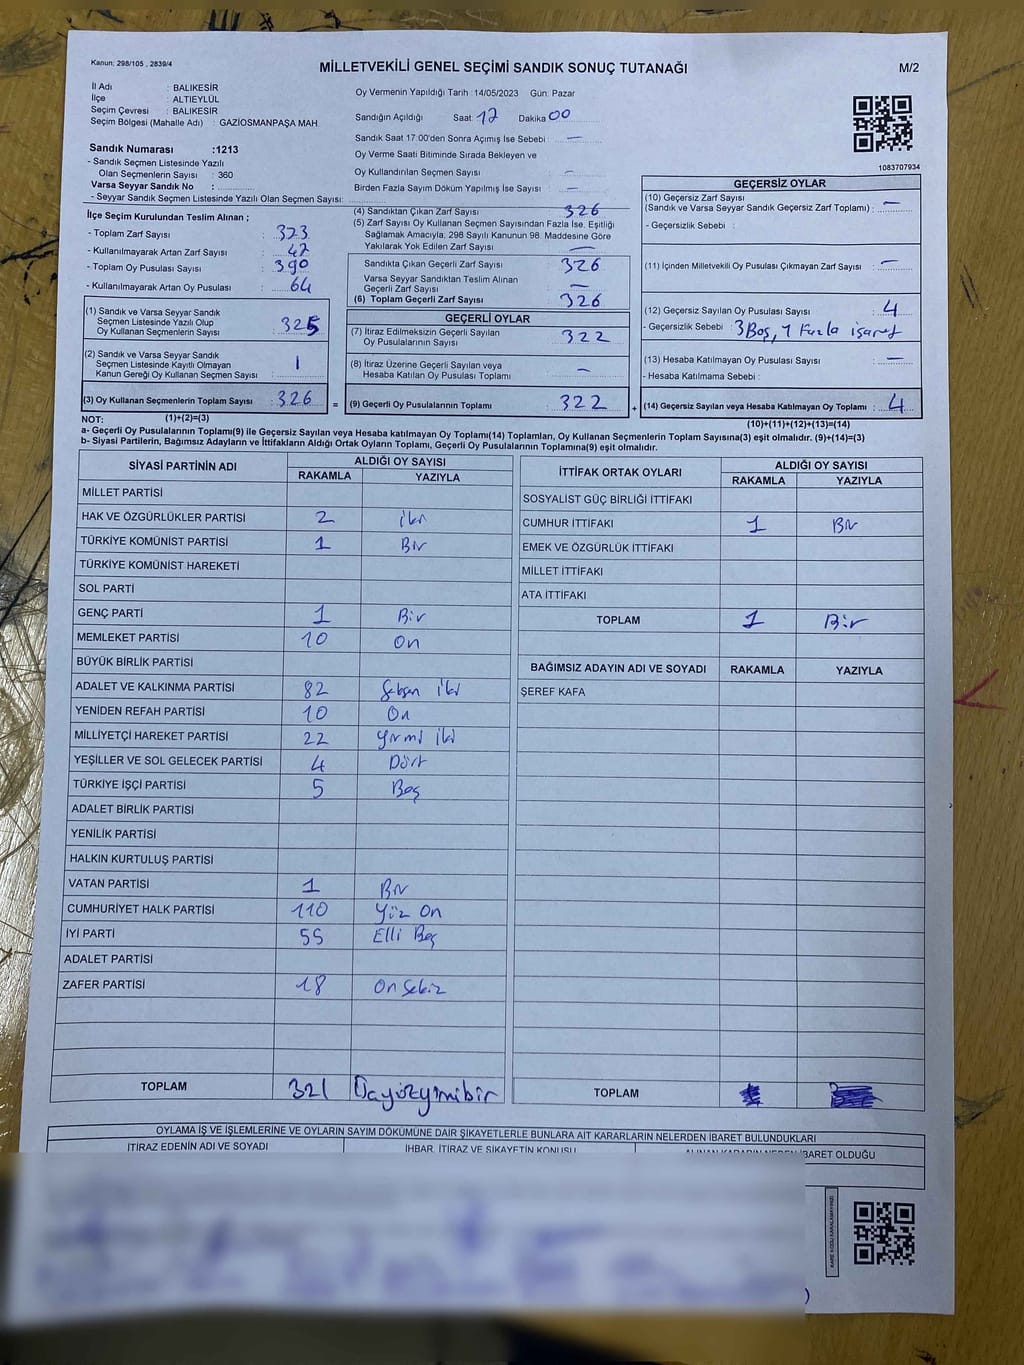 Kanun: 298/105 , 2839/4
MİLLETVEKİLİ GENEL SEÇİMİ SANDIK SONUÇ TUTANAĞI
M/2
İl Adı : BALIKESİR
İlçe : ALTIEYLÜL
Seçim Çevresi : BALIKESİR
Seçim Bölgesi (Mahalle Adı) : GAZİOSMANPAŞA MAH.
Sandık Numarası :1213
- Sandık Seçmen Listesinde Yazılı
Olan Seçmenlerin Sayısı : 360
Varsa Seyyar Sandık No :
- Seyyar Sandık Seçmen Listesinde Yazılı Olan Seçmen Sayısı:
Oy Vermenin Yapıldığı Tarih :14/05/2023 Gün: Pazar
Sandığın Açıldığı Saat: 17 Dakika 00
Sandık Saat 17:00'den Sonra Açımış İse Sebebi : —
Oy Verme Saati Bitiminde Sırada Bekleyen ve
Oy Kullandırılan Seçmen Sayısı : —
Birden Fazla Sayım Döküm Yapılmış İse Sayısı : —
1083707934
İlçe Seçim Kurulundan Teslim Alınan ;
- Toplam Zarf Sayısı : 373
- Kullanılmayarak Artan Zarf Sayısı : 47
- Toplam Oy Pusulası Sayısı : 390
- Kullanılmayarak Artan Oy Pusulası : 64
(1) Sandık ve Varsa Seyyar Sandık
Seçmen Listesinde Yazılı Olup
Oy Kullanan Seçmenlerin Sayısı : 325
(2) Sandık ve Varsa Seyyar Sandık
Seçmen Listesinde Kayıtlı Olmayan
Kanun Gereği Oy Kullanan Seçmen Sayısı : 1
(3) Oy Kullanan Seçmenlerin Toplam Sayısı : 326
(1)+(2)=(3)
(4) Sandıktan Çıkan Zarf Sayısı 326
(5) Zarf Sayısı Oy Kullanan Seçmen Sayısından Fazla İse, Eşitliği
Sağlamak Amacıyla; 298 Sayılı Kanunun 98. Maddesine Göre
Yakılarak Yok Edilen Zarf Sayısı : —
Sandıkta Çıkan Geçerli Zarf Sayısı : 326
Varsa Seyyar Sandıktan Teslim Alınan
Geçerli Zarf Sayısı : —
(6) Toplam Geçerli Zarf Sayısı : 326
GEÇERLİ OYLAR
(7) İtiraz Edilmeksizin Geçerli Sayılan
Oy Pusulalarının Sayısı : 322
(8) İtiraz Üzerine Geçerli Sayılan veya
Hesaba Katılan Oy Pusulası Toplamı : —
= (9) Geçerli Oy Pusulalarının Toplamı : 322 +
GEÇERSİZ OYLAR
(10) Geçersiz Zarf Sayısı
(Sandık ve Varsa Seyyar Sandık Geçersiz Zarf Toplamı) : —
- Geçersizlik Sebebi :
(11) İçinden Milletvekili Oy Pusulası Çıkmayan Zarf Sayısı : —
(12) Geçersiz Sayılan Oy Pusulası Sayısı : 4
- Geçersizlik Sebebi : 3 Boş, 1 Fazla işaret
(13) Hesaba Katılmayan Oy Pusulası Sayısı : —
- Hesaba Katılmama Sebebi :
(14) Geçersiz Sayılan veya Hesaba Katılmayan Oy Toplamı : 4
(10)+(11)+(12)+(13)=(14)
NOT:
a- Geçerli Oy Pusulalarının Toplamı(9) ile Geçersiz Sayılan veya Hesaba katılmayan Oy Toplamı(14) Toplamları, Oy Kullanan Seçmenlerin Toplam Sayısına(3) eşit olmalıdır. (9)+(14)=(3)
b- Siyasi Partilerin, Bağımsız Adayların ve İttifakların Aldığı Ortak Oyların Toplamı, Geçerli Oy Pusulalarının Toplamına(9) eşit olmalıdır.
SİYASİ PARTİNİN ADI ALDIĞI OY SAYISI
RAKAMLA YAZIYLA
MİLLET PARTİSİ
HAK VE ÖZGÜRLÜKLER PARTİSİ 2 iki
TÜRKİYE KOMÜNİST PARTİSİ 1 Bir
TÜRKİYE KOMÜNİST HAREKETİ
SOL PARTİ
GENÇ PARTİ 1 Bir
MEMLEKET PARTİSİ 10 On
BÜYÜK BİRLİK PARTİSİ
ADALET VE KALKINMA PARTİSİ 82 Seksen iki
YENİDEN REFAH PARTİSİ 10 On
MİLLİYETÇİ HAREKET PARTİSİ 22 Yirmi iki
YEŞİLLER VE SOL GELECEK PARTİSİ 4 Dört
TÜRKİYE İŞÇİ PARTİSİ 5 Beş
ADALET BİRLİK PARTİSİ
YENİLİK PARTİSİ
HALKIN KURTULUŞ PARTİSİ
VATAN PARTİSİ 1 Bir
CUMHURİYET HALK PARTİSİ 110 Yüz On
İYİ PARTİ 55 Elli Beş
ADALET PARTİSI
ZAFER PARTİSİ 18 On Sekiz
TOPLAM 321 Üçyüzyirmibir
İTTİFAK ORTAK OYLARI ALDIĞI OY SAYISI
RAKAMLA YAZIYLA
SOSYALİST GÜÇ BİRLİĞİ İTTİFAKI
CUMHUR İTTİFAKI 1 Bir
EMEK VE ÖZGÜRLÜK İTTİFAKI
MİLLET İTTİFAKI
ATA İTTİFAKI
TOPLAM 1 Bir
BAĞIMSIZ ADAYIN ADI VE SOYADI RAKAMLA YAZIYLA
ŞEREF KAFA
TOPLAM
OYLAMA İŞ VE İŞLEMLERİNE VE OYLARIN SAYIM DÖKÜMÜNE DAİR ŞİKAYETLERLE BUNLARA AİT KARARLARIN NELERDEN İBARET BULUNDUKLARI
İTİRAZ EDENİN ADI VE SOYADI İHBAR, İTİRAZ VE ŞİKAYETİN KONUSU ALINAN KARARIN NEDEN İBARET OLDUĞU